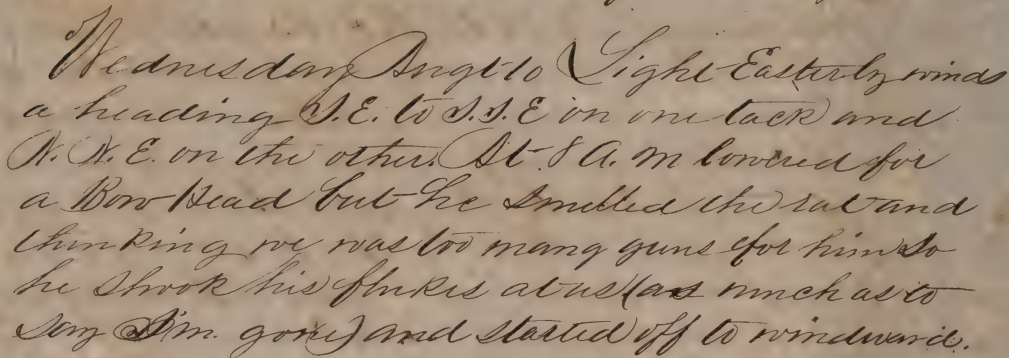 Wednesday Augt 10 Light Easterly winds
a heading S.E. to S.S.E on one tack and
N.N.E. on the other. At 8 A.m lowered for
a Bow Head but he smelled the rat and
thinking we was too many guns for him so
he shook his flukes at us (as much as to
say I'm gone) and started off to windward.